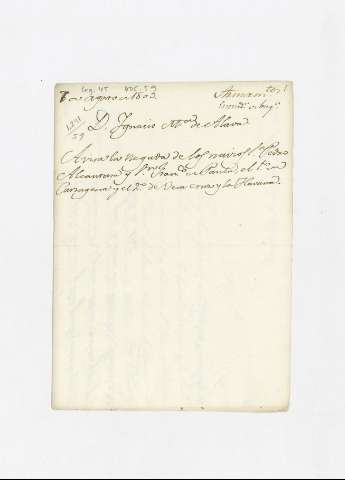 Leg. 45 Doc. 59
7 de Agosto de 1802
1241
59
D. Ignacio Mª de Alava
Avisa la llegada de los navios Sn Pedro
Alcantara y Sn Franco de Paula, el 1º en
Cartagena y el 2º de Vera cruz y la Havana.